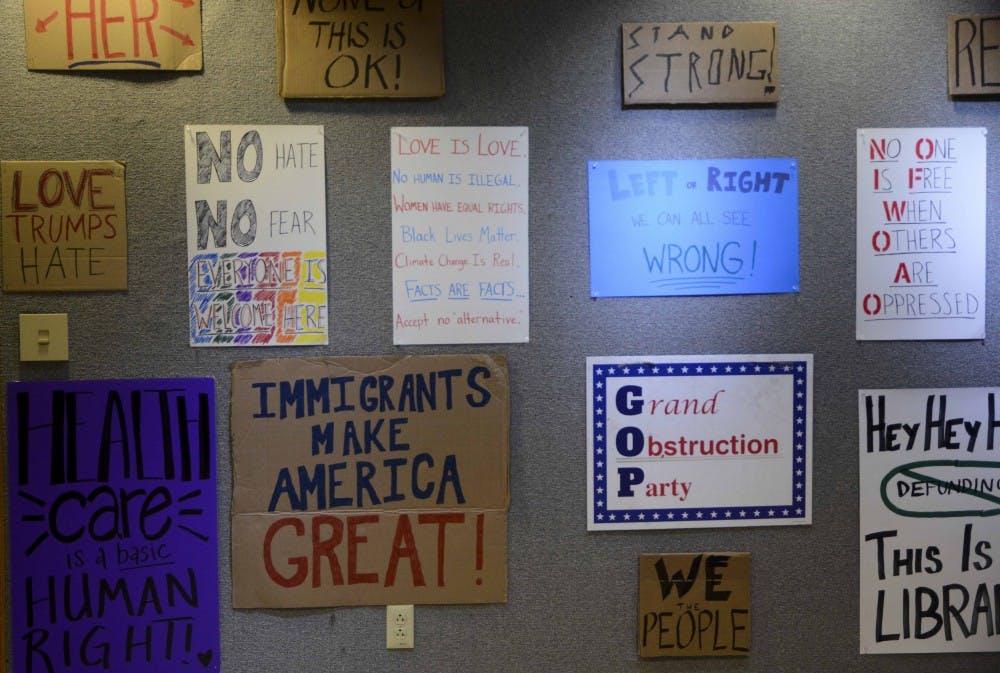 HER
NONE OF
THIS IS
OK!
STAND
STRONG!
RE
LOVE
TRUMPS
HATE
NO HATE
NO FEAR
EVERYONE IS
WELCOME HERE
LOVE IS LOVE.
NO HUMAN IS ILLEGAL.
WOMEN HAVE EQUAL RIGHTS.
Black Lives Matter.
Climate Change Is Real.
FACTS ARE FACTS...
Accept no "alternative."
LEFT or RIGHT
WE CAN ALL SEE
WRONG!
NO ONE
IS FREE
WHEN
OTHERS
ARE
OPPRESSED
HEALTH
care
is a basic
HUMAN
RIGHT!
IMMIGRANTS
MAKE
AMERICA
GREAT!
Grand
Obstruction
Party
WE
THE
PEOPLE
HEY HEY H
DEFUNDING
THIS IS
LIBRA